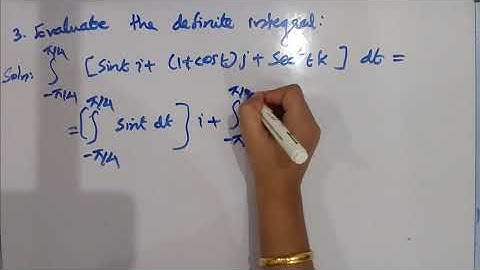 3. Evaluate the definite integral:
Soln: ∫_{-π/4}^{π/4} [sint i + (1+cost) j + sec²t k] dt =
= [∫_{-π/4}^{π/4} sint dt} i + ∫_{-π/4}^{π/4}